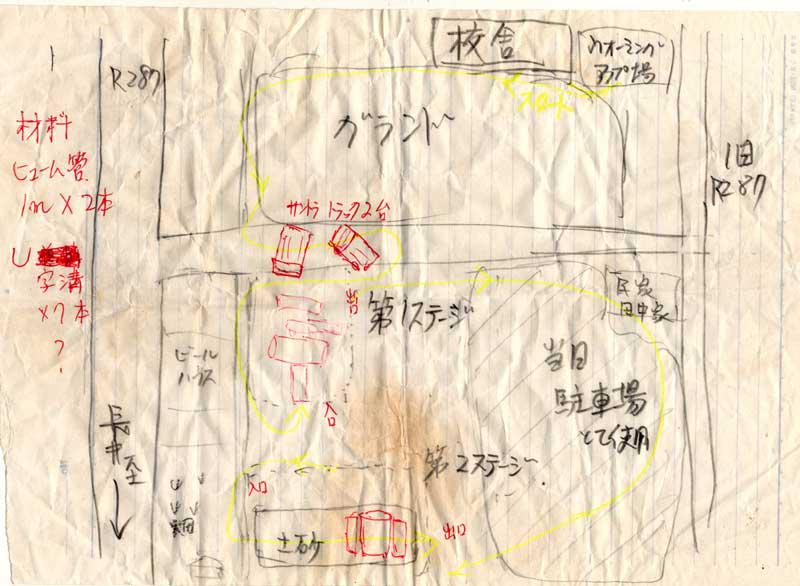 校舎
ウオーミング
アップ場
スタート
R287
グランド
旧
R287
材料
ヒューム管
1m×2本
U
字溝
×7本
?
サントラ トラック2台
出口
第1ステージ
入口
民家
田中家
ビール
ハウス
当日
駐車場
として使用
長井至
第2ステージ
入口
土砂
出口